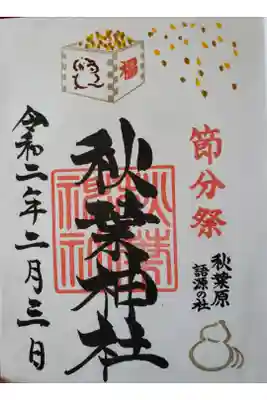 福
節分祭
秋葉原
語源の社
秋葉神社
令和二年二月三日